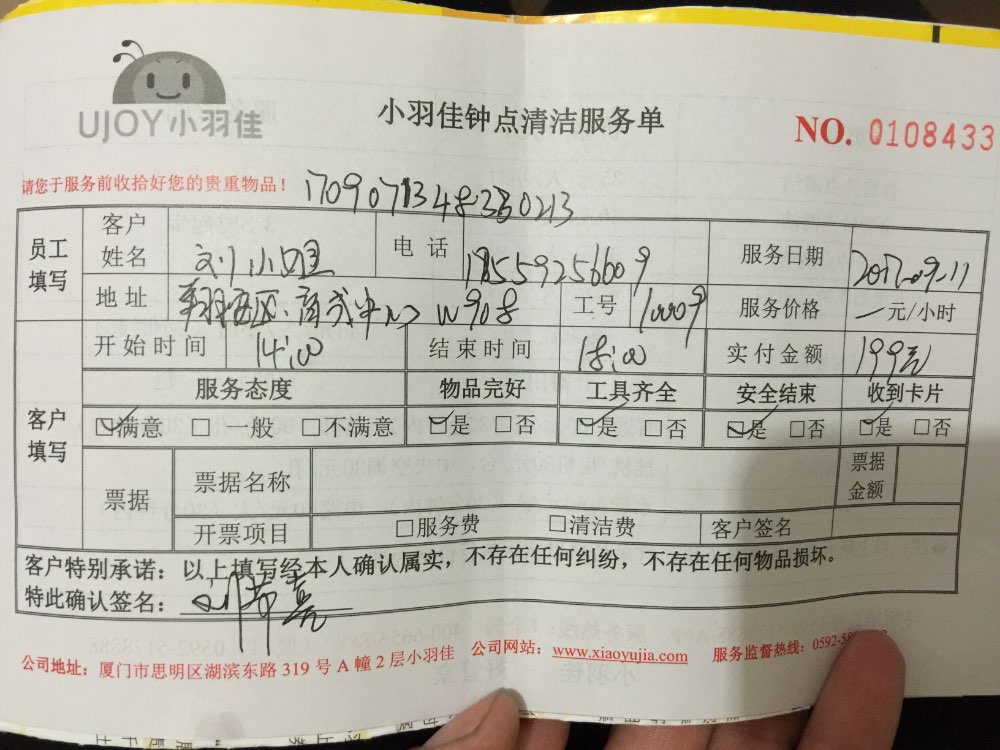 UJOY小羽佳
小羽佳钟点清洁服务单
NO. 0108433
请您于服务前收拾好您的贵重物品！
员工填写 客户姓名 刘小姐 电话 服务日期 2017.09.11
地址 W908 工号 10009 服务价格 一元/小时
客户填写 开始时间 14:00 结束时间 18:00 实付金额 199元
服务态度 物品完好 工具齐全 安全结束 收到卡片
☑满意 □一般 □不满意 ☑是 □否 ☑是 □否 ☑是 □否 ☑是 □否
票据 票据名称 票据金额
开票项目 □服务费 □清洁费 客户签名
客户特别承诺：以上填写经本人确认属实，不存在任何纠纷，不存在任何物品损坏。
特此确认签名：
公司地址：厦门市思明区湖滨东路319号A幢2层小羽佳 公司网站：www.xiaoyujia.com 服务监督热线：0592-